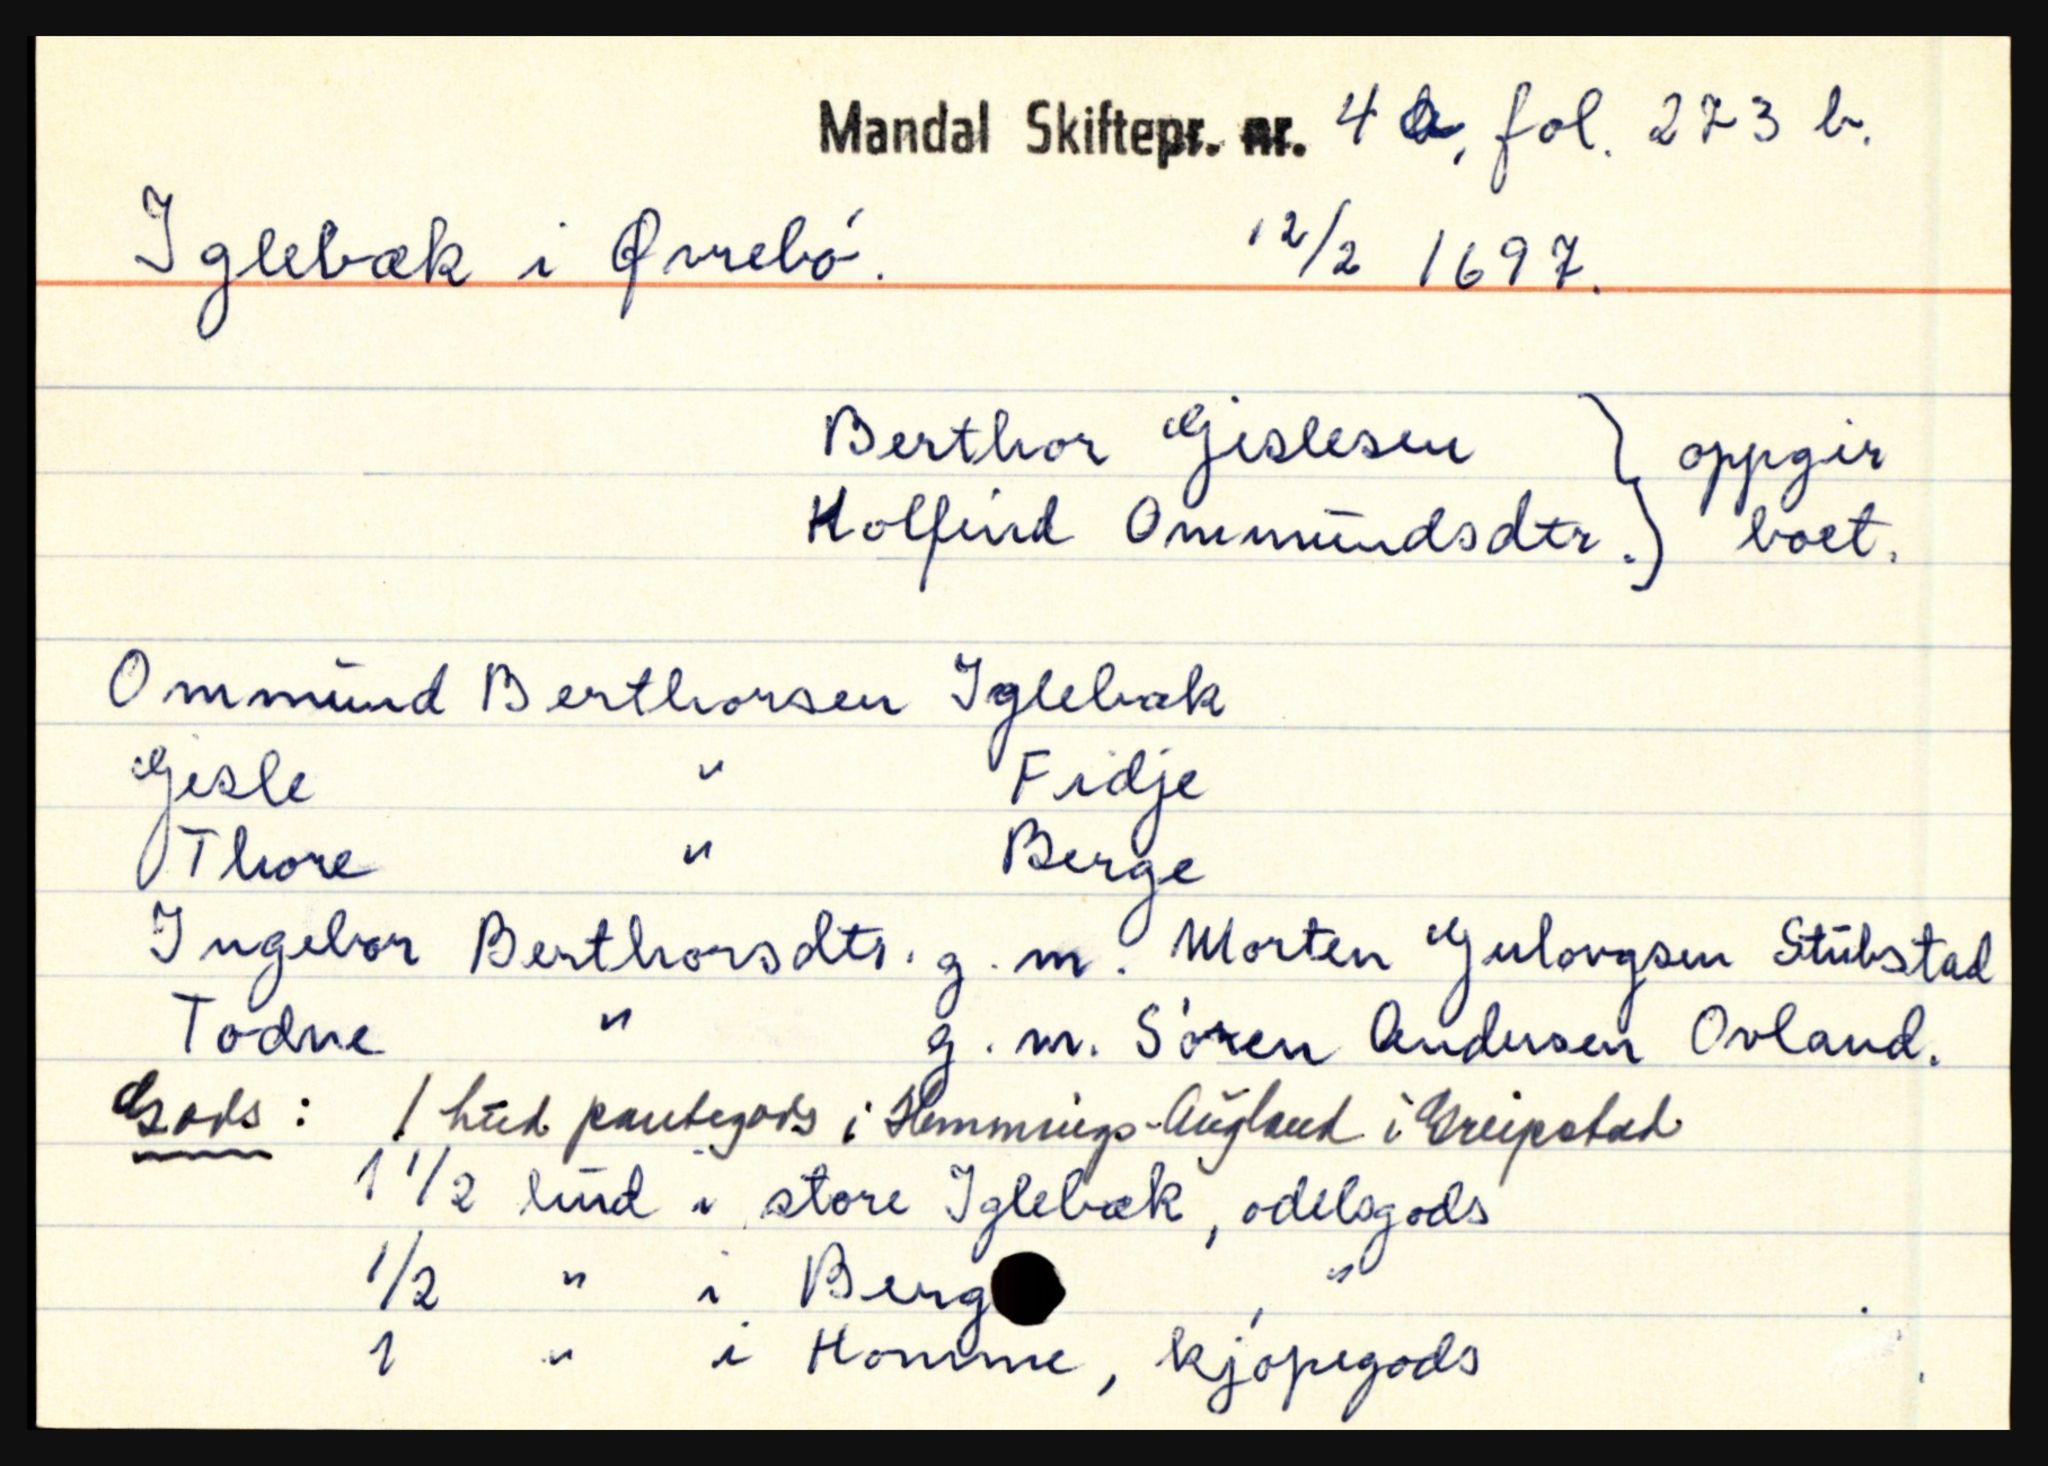 Mandal Skiftepr. nr. 4 a, fol. 273 b.
Iglebæk i Øvrebó. 12/2 1697.
Berthor Gjeslesen } oppgir
Holfrid Ommundsdtr. } boet.
Ommund Berthorsen Iglebæk
Gjesle " Fidje
Thore " Berge
Ingebor Berthorsdtr. g. m. Morten Gulovgsen Stubstad
Todne " g. m. Sóren Andersen Ovland.
Gods: 1 hud pantegods i Hemmings-Augland i Greipstad
1 1/2 hud i store Iglebæk, odelsgods
1/2 " i Berg , "
1 " i Homme, kjópegods